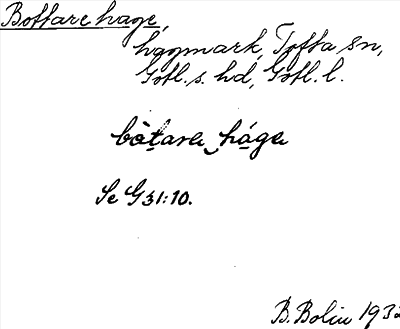 Bottarehage,
hygmark, Tofta sn,
Gotl. s. hd, Gotl. l.
båtare håge
Se G 31:10.
B. Bolin 1932